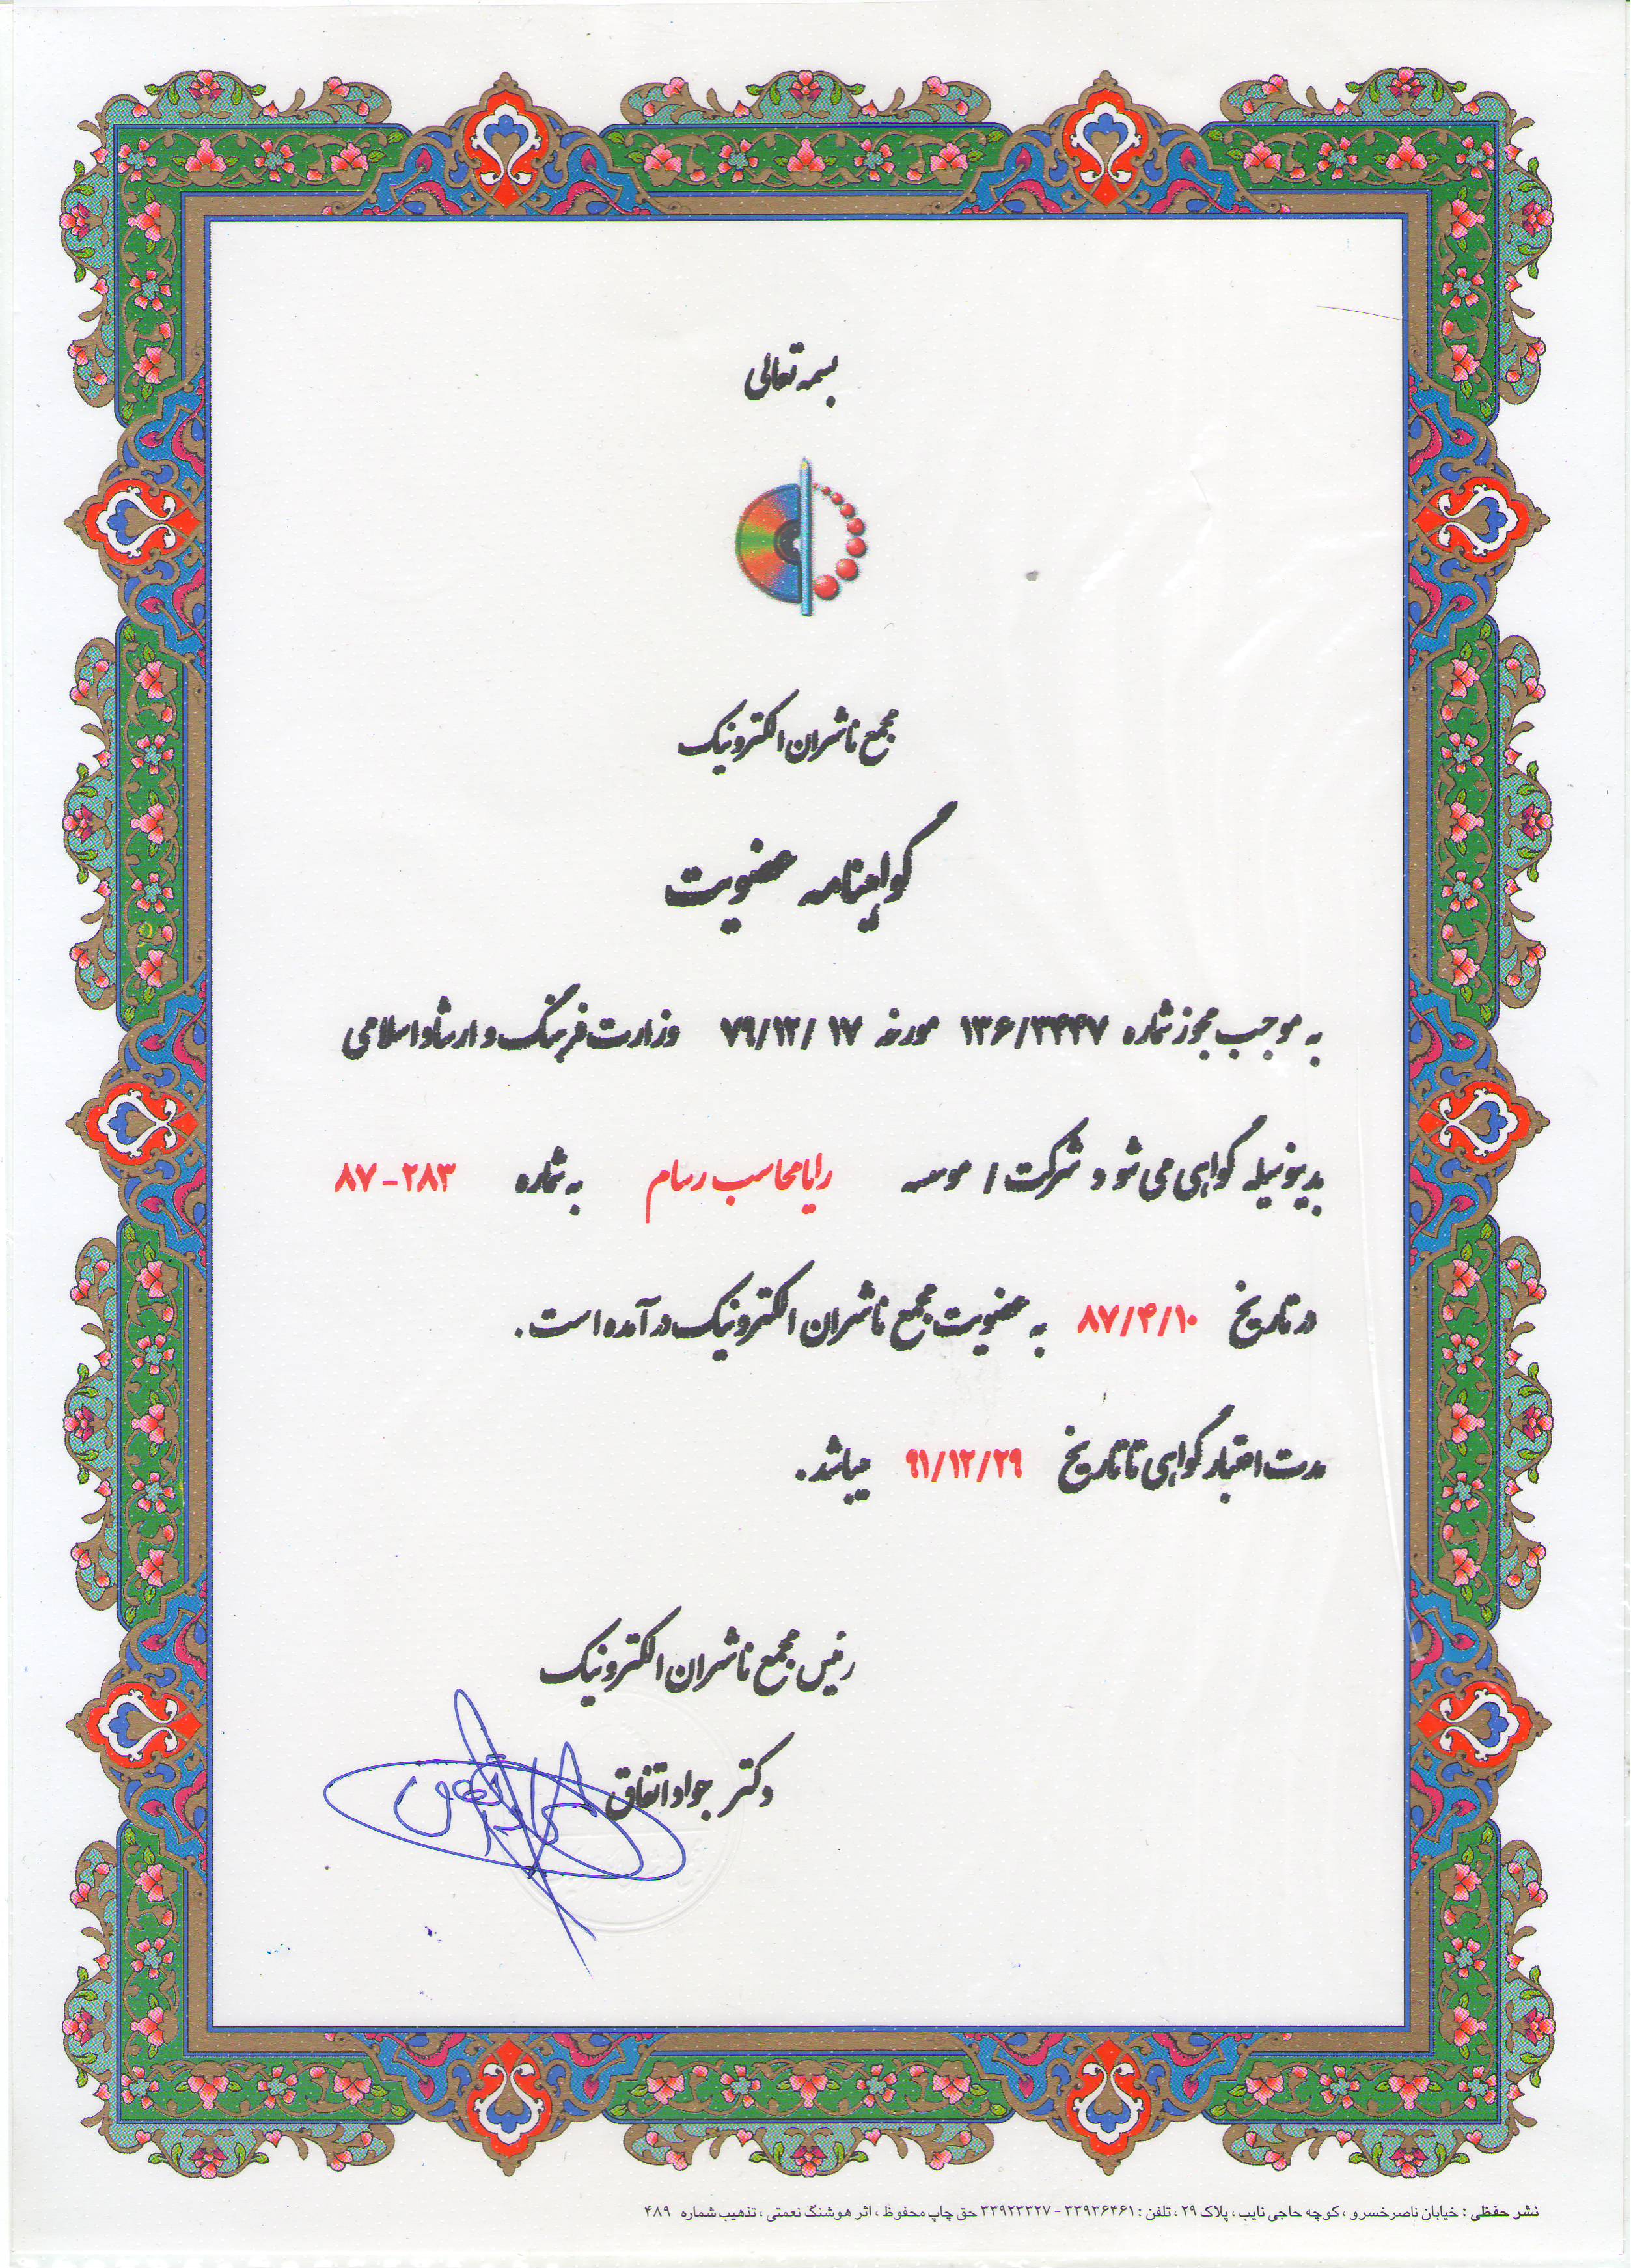 بسمه تعالی
مجمع ناشران الکترونیک
گواهینامه عضویت
به موجب مجوز شماره ۱۳۶/۳۴۴۷ مورخه ۷۹/۱۲/۱۷ وزارت فرهنگ و ارشاد اسلامی
بدینوسیله گواهی می شود شرکت / موسسه رایا محاسب رسام به شماره ۲۸۳-۸۷
در تاریخ ۸۷/۴/۱۰ به عضویت مجمع ناشران الکترونیک در آمده است.
مدت اعتبار گواهی تا تاریخ ۹۱/۱۲/۲۹ میباشد.
رئیس مجمع ناشران الکترونیک
دکتر جواد اتفاق
نشر حفظی : خیابان ناصرخسرو ، کوچه حاجی نایب ، پلاک ۲۹ ، تلفن : ۳۳۹۳۶۴۶۱ - ۳۳۹۲۳۳۲۷ حق چاپ محفوظ ، اثر هوشنگ نعمتی ، تذهیب شماره ۴۸۹